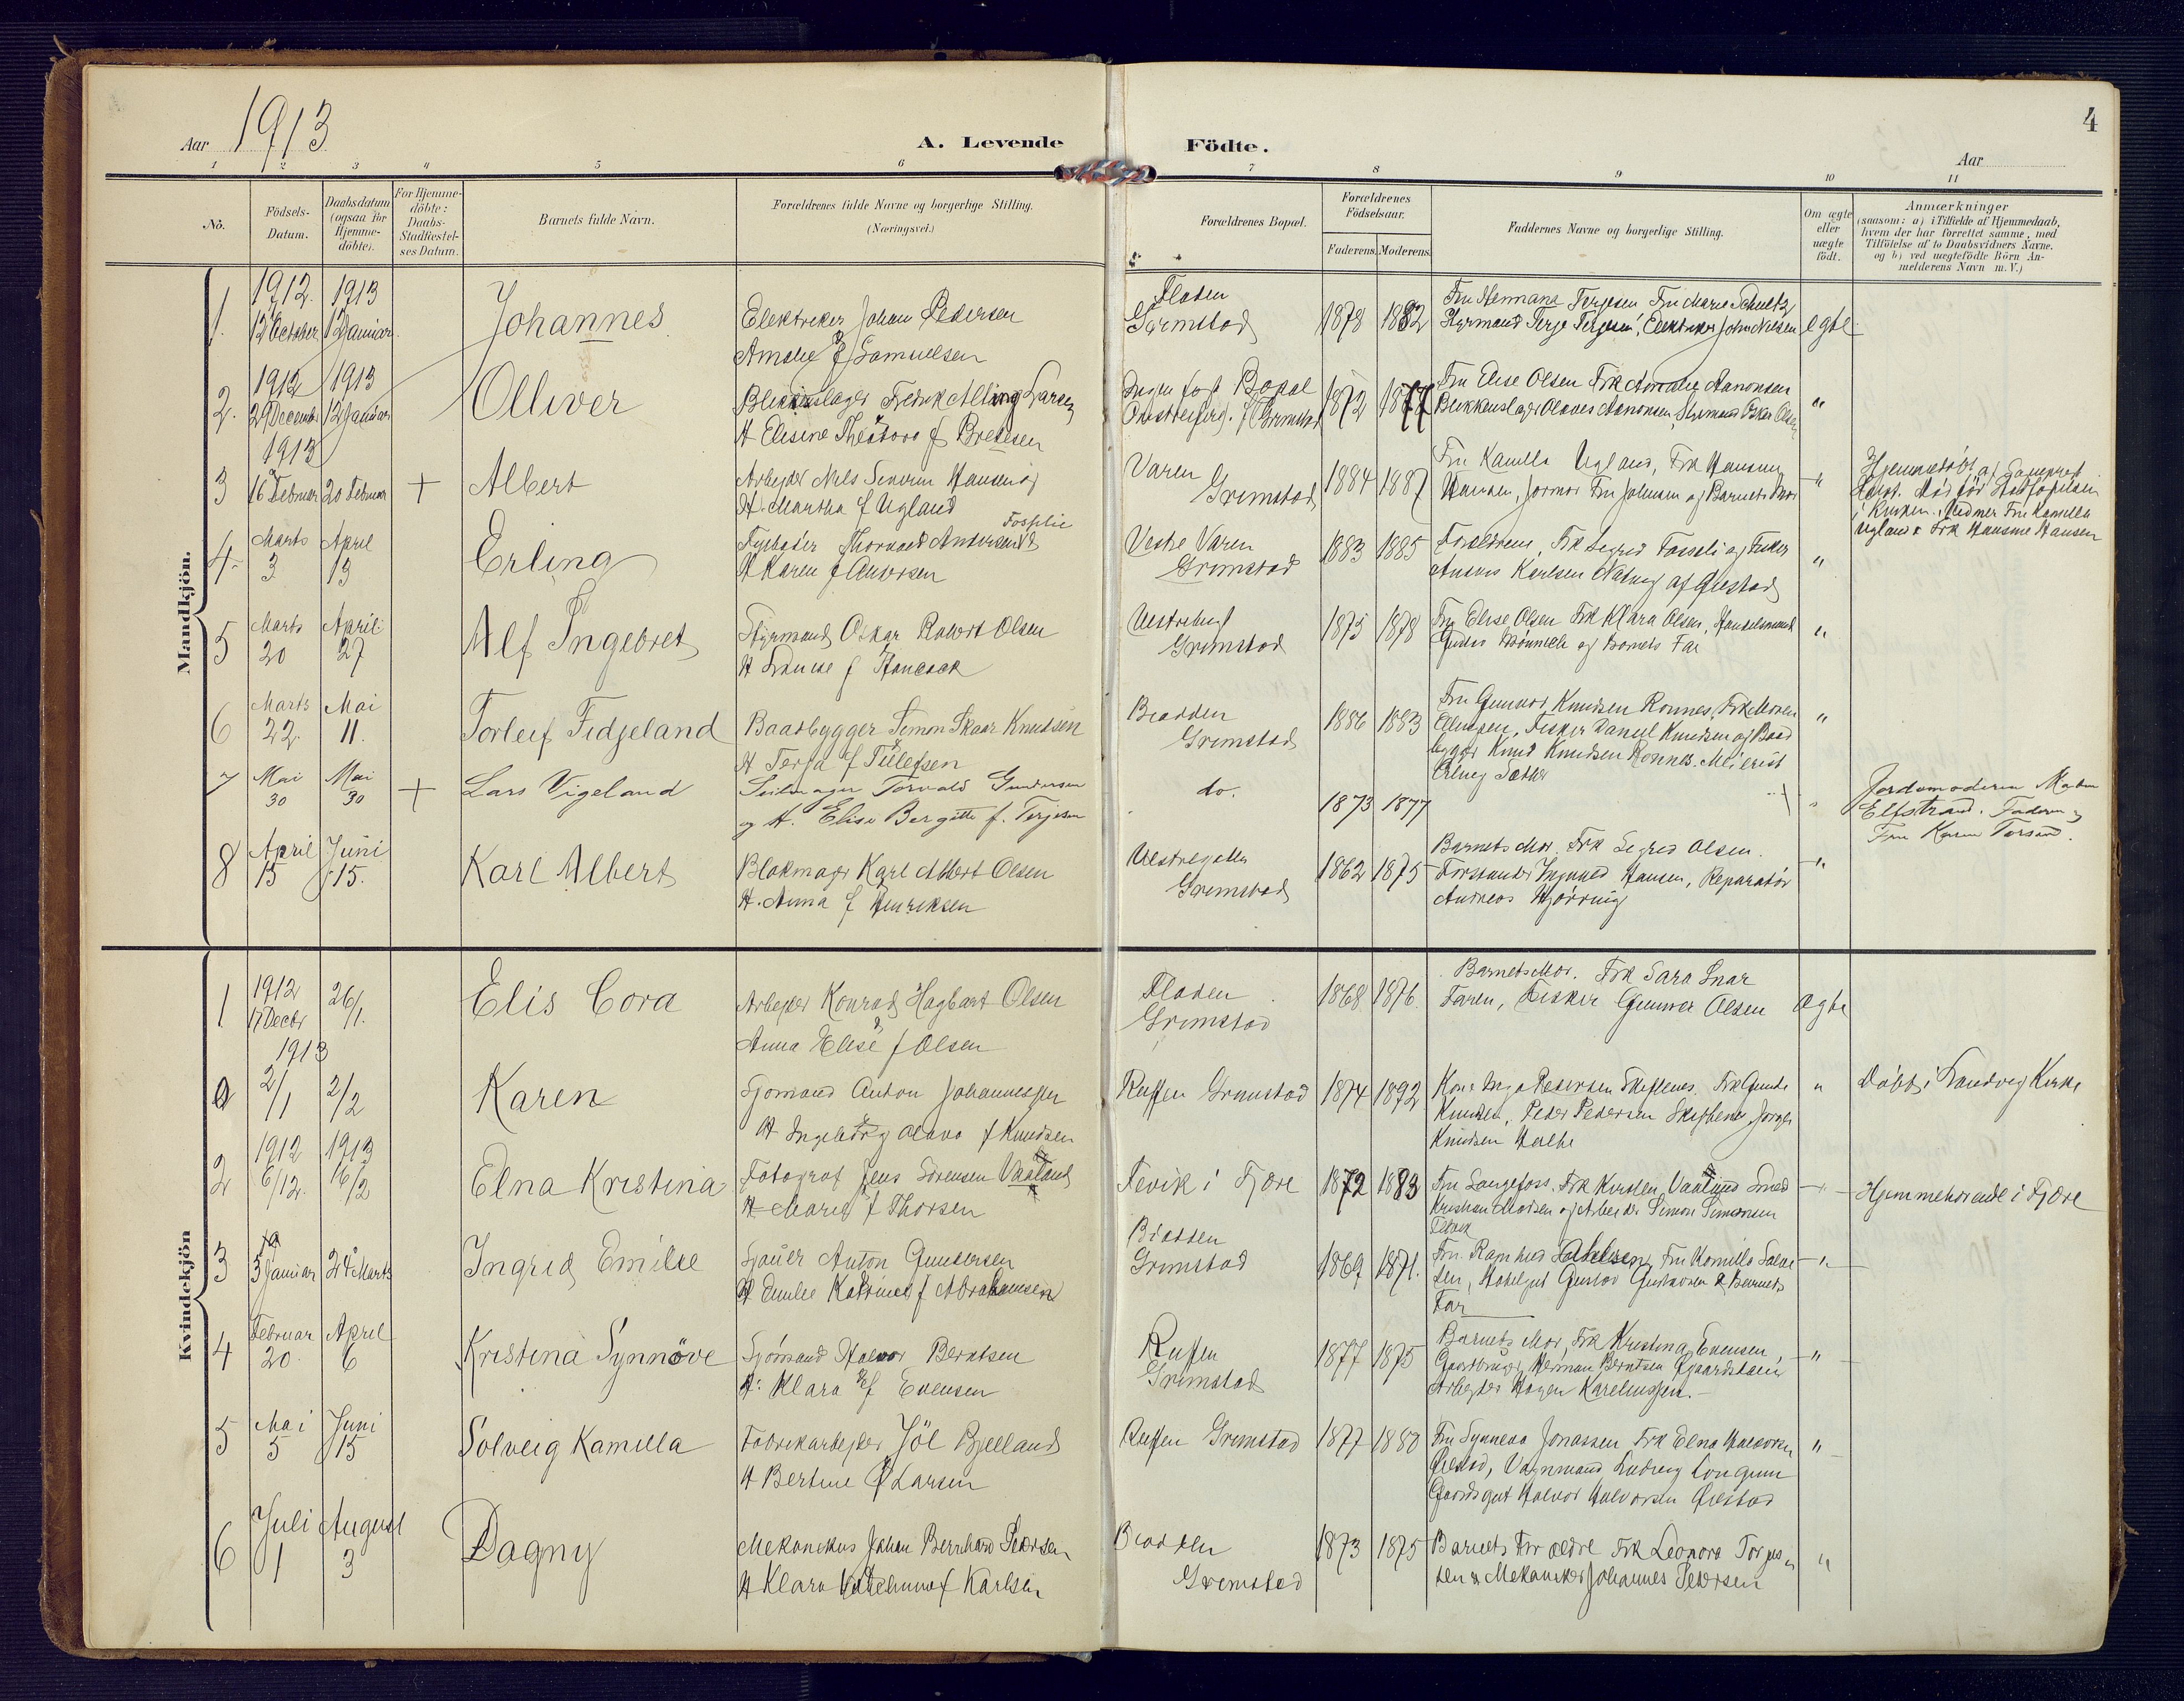 4
Aar 1913
A. Levende Födte.
Aar
1 2 3 4 5 6 7 8 9 10 11
No.
Födsels-Datum.
Daabsdatum (ogsaa for Hjemme-döbte).
For Hjemme-döbte: Daabs-Stadfæstel-ses Datum.
Barnets fulde Navn.
Forældrenes fulde Navne og borgerlige Stilling.
(Næringsvei.)
Forældrenes Bopæl.
Forældrenes Födselsaar.
Faderens. Moderens.
Faddernes Navne og borgerlige Stilling.
Om ægte eller uægte födt.
Anmærkninger
(saasom: a) i Tilfælde af Hjemmedaab, hvem der har forrettet samme, med Tilföielse af to Daabsvidners Navne. og b) ved uægtefödte Börn An-melderens Navn m. V.)
Mandkjön.
1. 1912 12 October 1913 12 Januar Johannes
Elektriker Johan Pedersen
Amalie f Samuelsen
Floden
Grimstad 1878 1882
Fru Hermana Terjesen Fru Marie Schultz
Styrmand Terje Terjesen, Elektriker John Nielsen
egte
2. 1912 29 Decembr 1913 12 Januar Olliver
Blikkenslager Fredrik Larsen
H Elisine Theodora f
Ingen fast Bopæl
Grimstad 1872 1877
Fru Elise Olsen Frk Amalie Aanonsen
Blikkenslager Olaves Aanonsen, Styrmand Oskar Olsen
"
1913
3 16 Februar 20 Februar + Albert
Arbeider Niels Severin Hansen og
H. Martha f Ugland
Varen
Grimstad 1884 1887
Fru Kamilla Ugland, Frk Hansine
Hansen, Jormor Fru Johnsen og Barnets Mor
"
Hjemmedöbt af
i Kirken. Vidner Fru Kamilla
Ugland & Frk Hansine Hansen
4. Marts 3 April 13 Erling
Fyrböder Thorvald Andersen Fosslie
H Karen f Andersen
Vestre Varen
Grimstad 1883 1885
Forældrene, Frk Sigrid Fosseli og Fisker
Karlsen
"
5 Marts 20 April 27 Alf Ingebret
Styrmand Oskar Robert Olsen
H Louise f Hancock
Grimstad 1875 1878
Fru Elise Olsen Frk Klara Olsen, Handelsmand
og Barnets Far
"
6 Marts 22. Mai 11. Torleif Fidjeland
Baadbygger Simon Skaar Knudsen
H Terja f Tellefsen
Bradden
Grimstad 1886 1883
Fru Gunvor Knudsen Ronnes, Frk Maren
Ellingsen, Fisker Daniel Knudsen og Baad
bygger Knud Knudsen Ronnes. Meierist
Erling Sæther
"
7 Mai 30 Mai 30 + Lars Vigeland
Seilmager Torvald Gundersen
og H. Elise Bergitte f. Terjesen
do. 1873 1877
"
Jordemoderen
Elfstrand. Faderen og
Fru Karen
8 April 15 Juni 15. Karl Albert
Blokmager Karl Albert Olsen
H. Anna f Henriksen
Vestregaten
Grimstad 1862 1875
Barnets Mor. Frk Sigrid Olsen.
Forstander Ingvald Hansen, Reparatör
Andreas Hjörring
"
Kvindekjön
1 1912 17 Decbr 26/1. Elis Cora
Arbeider Konrad Hagbart Olsen
Anna Elise f Olsen
Floden
Grimstad 1868 1876.
Barnets Mor. Frk Sara Snar
Faren, Fisker Gunvor Olsen
Ægte
1913
2/1 2/2 Karen
Sjömand Anton Johannessen
H Ingeborg Olava f Knudsen
Grimstad 1874 1892
Kone Inga Pedersen
Knudsen, Peder Pedersen
Knudsen
"
Döbt i Landvig Kirke
2 1912 6/12. 1913 16/2 Elna Kristina
Fotograf Jens Sörensen Vaaland
H Marie f Thorsen
Fevik i Fjære 1872 1883
Fru Langefoss. Frk Kirsten Vaalund Smed
Kristian Madsen og Arbeider Simon Simonsen
Fevik
"
Hjemmehörende i Fjære
3 3 Januar 24 Marts Ingrid Emilie
Sjauer Anton Gundersen
H Emilie Katrine f Abrahamsen
Bradden
Grimstad 1869 1871.
Fru Ragnhild, Fru Kamilla
Gustav Gustavsen & Barnets
Far
"
4 Februar 20. April 6 Kristina Synnöve
Sjömand Halvor Berntsen
H. Klara f Evensen
Grimstad 1877 1875
Barnets Mor, Frk Kristina Evensen,
Gaardbruger Herman Berntsen
Arbeider Hagen Kareliussen.
"
5 Mai 5 Juni 15 Solveig Kamilla
Fabrikarbeider Joël Bjelland
H Bertine f Larsen
Grimstad 1877 1880
Fru Synneva Jonassen Frk Elna Halvorsen
Øiestad, Vognmand Ludvig Longum
Gaardsgut Halvor Halvorsen Øiestad
"
6 Juli 1 August 3 Dagny
Mekanikus Johan Bernhard Pedersen
H Klara Vilhelmina f Karlsen
Bradden
Grimstad 1873 1875
Barnets Forældre Frk Leonora Torjus
sen & Mekaniker Johannes Pedersen
"